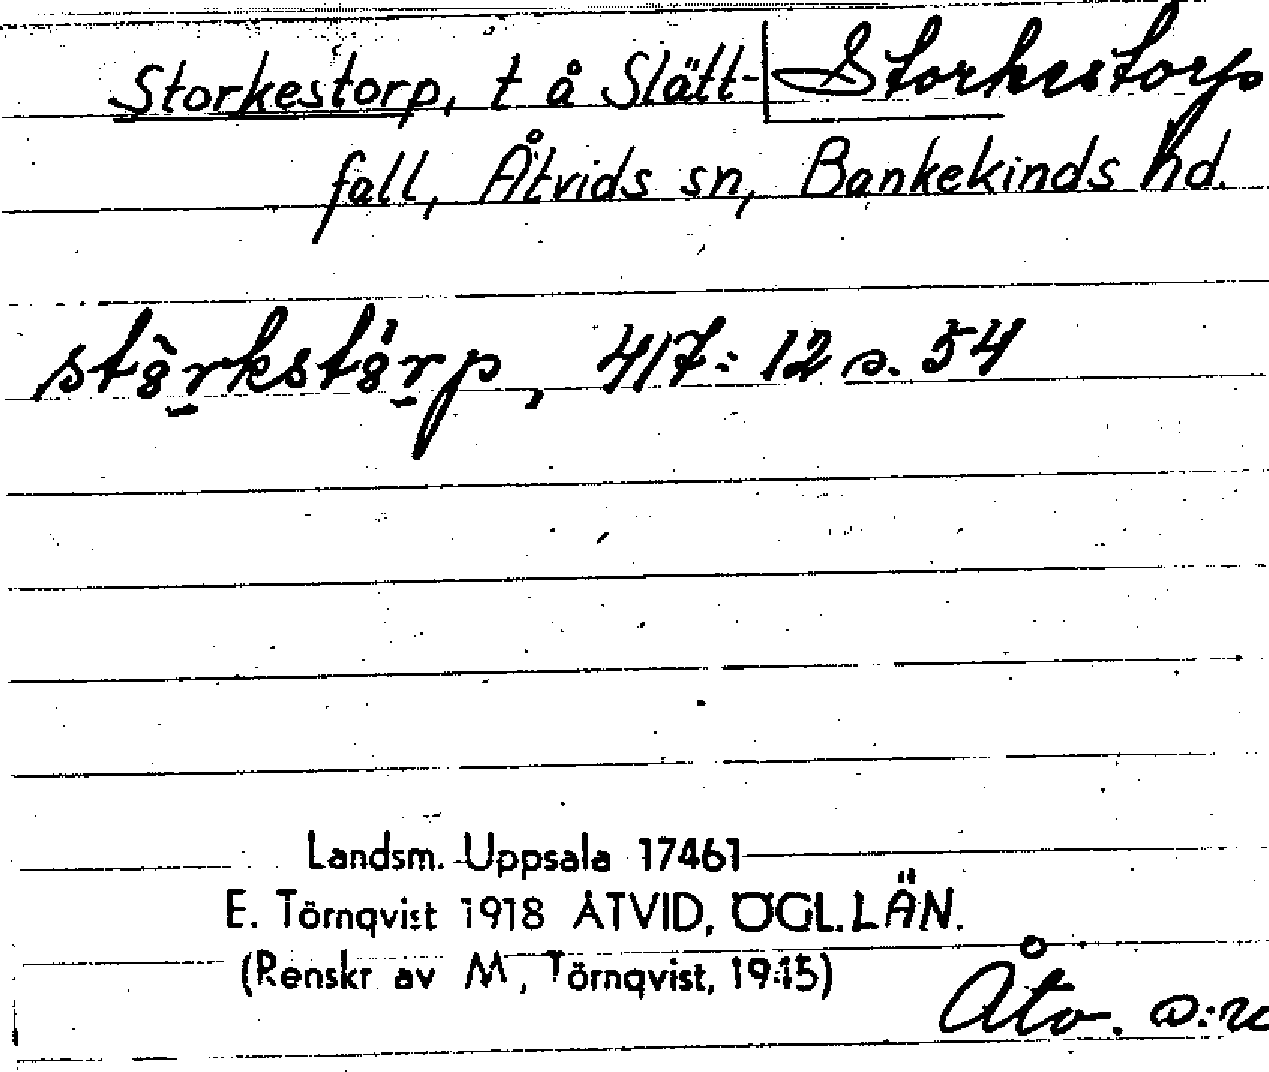 Storkestorp, t å Slätt- Storkestorp
fall, Åtvids sn, Bankekinds hd.
417:12 s. 54
Landsm. Uppsala 17461
E. Törnqvist 1918 ÅTVID, ÖGL. LÄN.
(Renskr av M, Törnqvist, 1945)
Åtv.